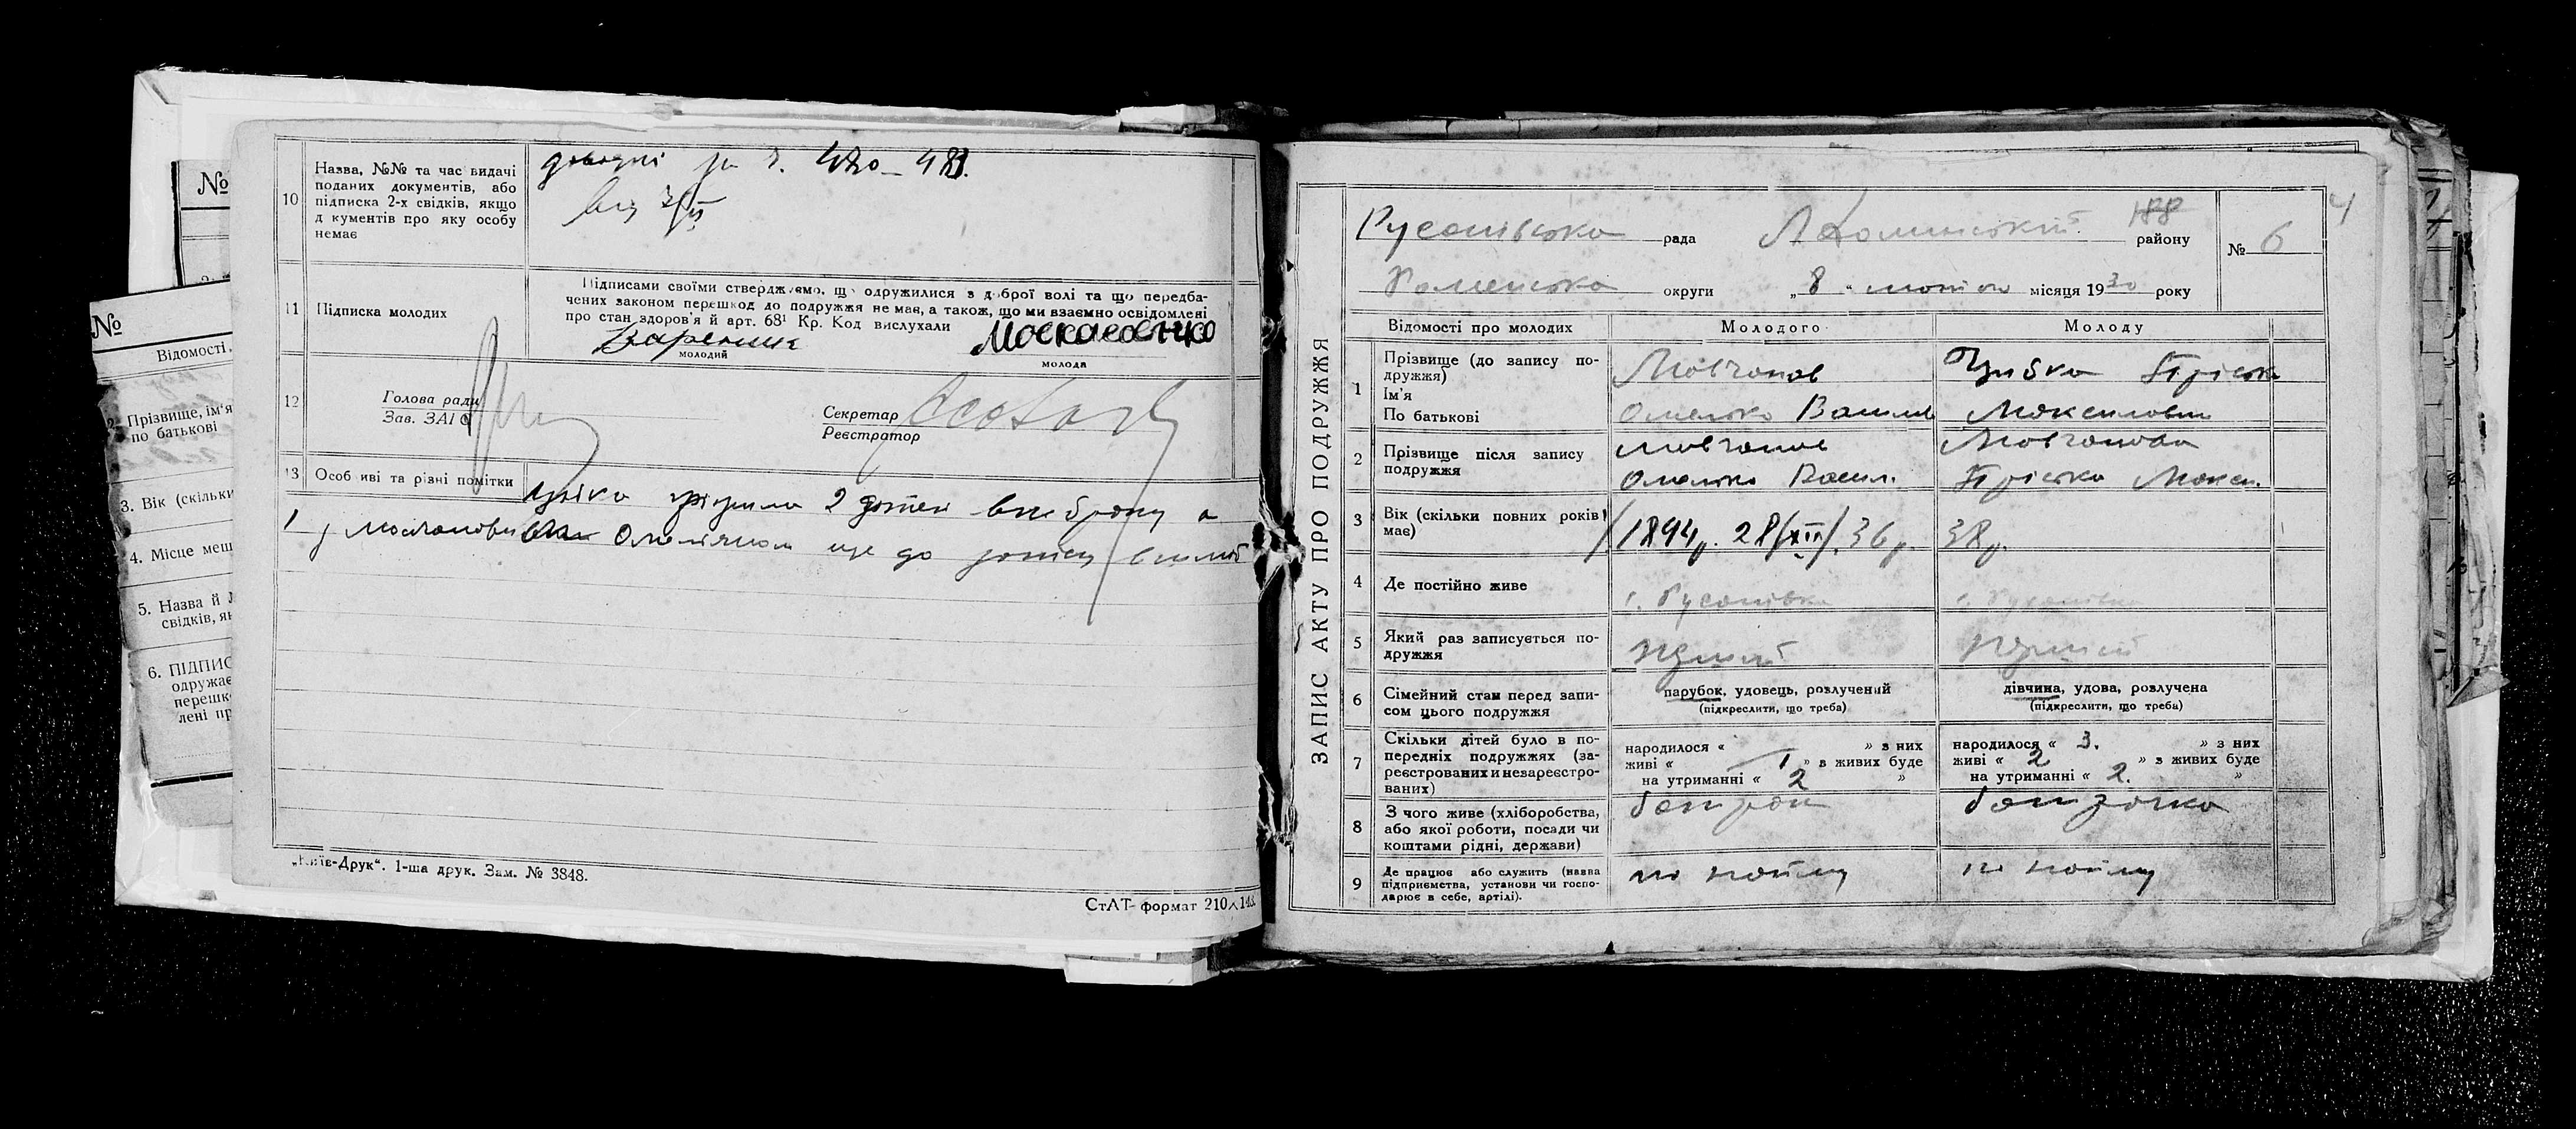 №
№
Відомості.
2. Прізвище, ім'я
по батькові
3. Вік (скільки
4. Місце меш
5. Назва й
свідків, як
6. ПІДПИС
одружає
перешк
лені пр
10 Назва, №№ та час видачі
поданих документів, або
підписка 2-х свідків, якщо
д кументів про яку особу
немає
11 Підписка молодих
Підписами своїми стверджуємо, що одружилися з доброї волі та що передба-
чених законом перешкод до подружжя немає, а також, що ми взаємно освідомлені
про стан здоров'я й арт. 68¹ Кр. Код вислухали
Вареник Москаленко
молодий молода
12 Голова ради
Зав. ЗАГС
Секретар
Реєстратор
13 Особ иві та різні помітки
2 дітей
ще до
„Київ-Друк“. 1-ша друк. Зам. № 3848.
СтАТ-формат 210×148.
ЗАПИС АКТУ ПРО ПОДРУЖЖЯ
4
188
Русанівська рада району
№ 6
Роменська округи „8“ лютого місяця 1930 року
Відомості про молодих Молодого Молоду
1 Прізвище (до запису по-
дружжя)
Ім'я
По батькові
Мовчанов
Омелько Васильов
Цибка Пріська
Максимовна
2 Прізвище після запису
подружжя
Мовчанов
Омелько Васил.
Мовчанова
Пріська Макси.
3 Вік (скільки повних років
має)
/1894р. 28/XII/. 36р. 38р.
4 Де постійно живе
с. Русанівка с. Русанівка
5 Який раз записується по-
дружжя
перший перший
6 Сімейний стан перед запи-
сом цього подружжя
парубок, удовець, розлучений
(підкреслити, що треба)
дівчина, удова, розлучена
(підкреслити, що треба)
7 Скільки дітей було в по-
передніх подружжях (за-
реєстрованих и незареєстро-
ваних)
народилося « » з них
живі « 1 » в живих буде
на утриманні « 2 »
народилося « 3. » з них
живі « 2 » з живих буде
на утриманні « 2. »
8 З чого живе (хліборобства,
або якої роботи, посади чи
коштами рідні, держави)
батрак батрачка
9 Де працює або служить (назва
підприємства, установи чи госпо-
дарює в себе, артілі).
по найму по найму